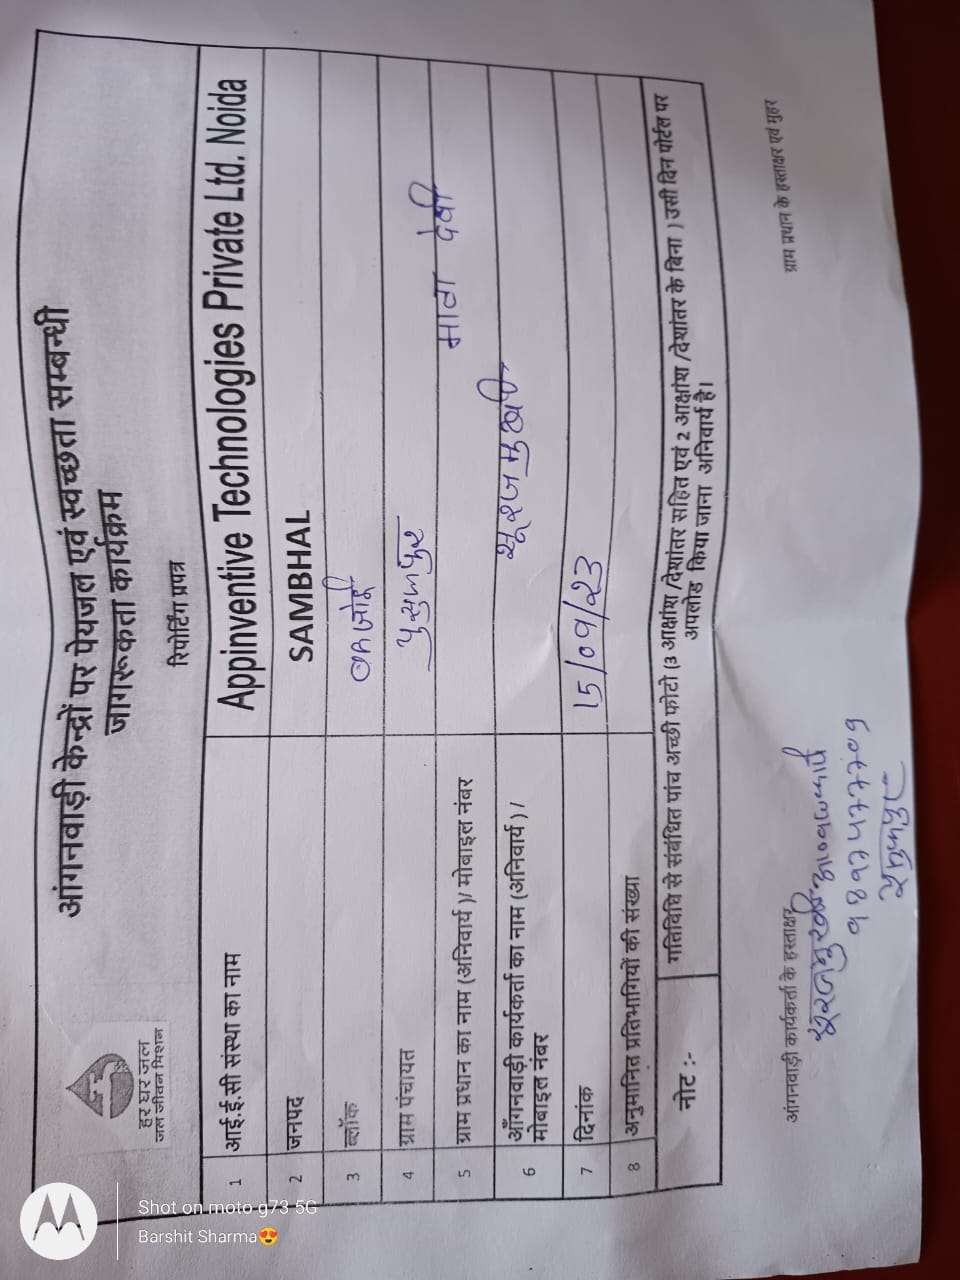 हर घर जल
जल जीवन मिशन
आंगनवाड़ी केन्द्रों पर पेयजल एवं स्वच्छता सम्बन्धी
जागरूकता कार्यक्रम
रिपोर्टिंग प्रपत्र
1 आई.ई.सी संस्था का नाम Appinventive Technologies Private Ltd. Noida
2 जनपद SAMBHAL
3 ब्लॉक बनजोई
4 ग्राम पंचायत
5 ग्राम प्रधान का नाम (अनिवार्य )/ मोबाइल नंबर माला देवी
6 आँगनवाड़ी कार्यकर्ता का नाम (अनिवार्य ) / सूरजमुखी
मोबाइल नंबर
7 दिनांक 15/09/23
8 अनुमानित प्रतिभागियों की संख्या
नोट :- गतिविधि से संबंधित पांच अच्छी फोटो (3 आक्षांश /देशांतर सहित एवं 2 आक्षांश /देशांतर के बिना ) उसी दिन पोर्टल पर
अपलोड किया जाना अनिवार्य है।
आंगनवाड़ी कार्यकर्ता के हस्ताक्षर ग्राम प्रधान के हस्ताक्षर एवं मुहर
सूरजमुखी
Shot on moto g73 5G
Barshit Sharma😍